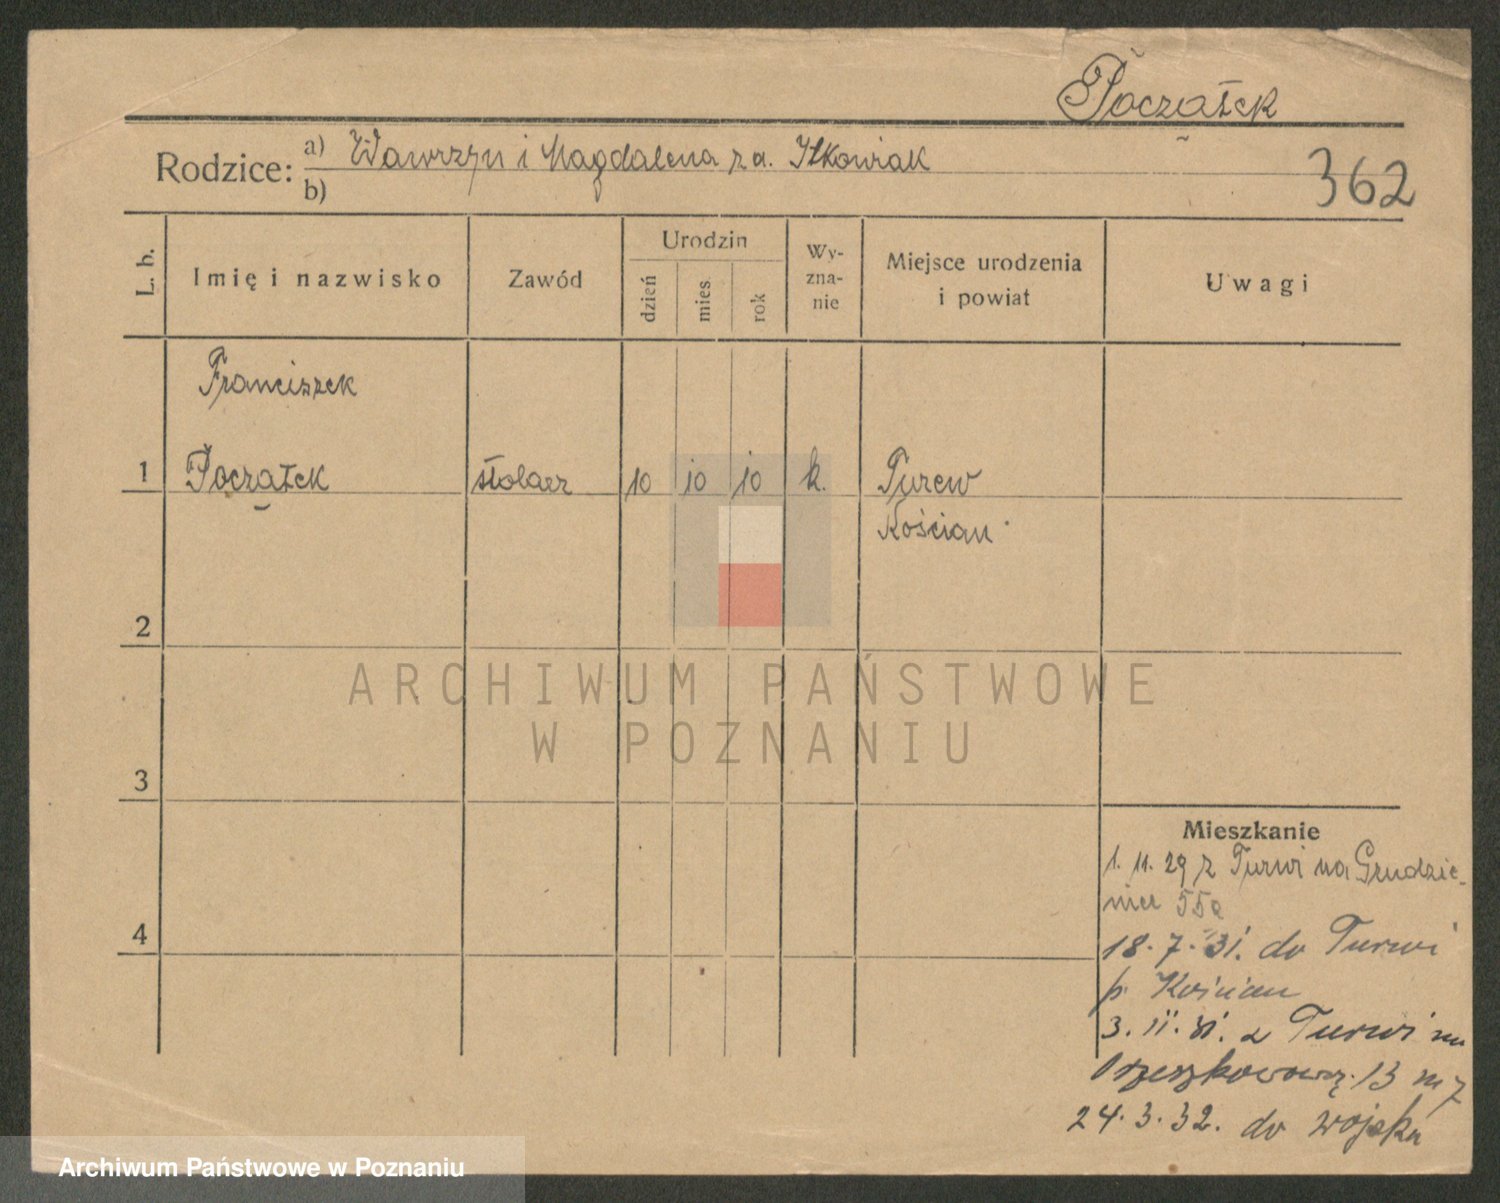 Początek
Rodzice: a) Wawrzyn i Magdalena z d. Iłkowiak
b)
362
L. b.
Imię i nazwisko
Zawód
Urodzin
dzień
mies.
rok
Wy-
zna-
nie
Miejsce urodzenia
i powiat
Uwagi
Franciszek
1 Początek stolarz 10 10 10 k. Turew
Kościan
2
3
4
Mieszkanie
1. 11. 29 z Turwi na Grudzie-
niec 55a
18. 7. 31. do Turwi
p. Kościan
3. 11. 31. z Turwi na
Orzeszkowową. 13 m 7
24. 3. 32. do wojska
ARCHIWUM PAŃSTWOWE
W POZNANIU
Archiwum Państwowe w Poznaniu